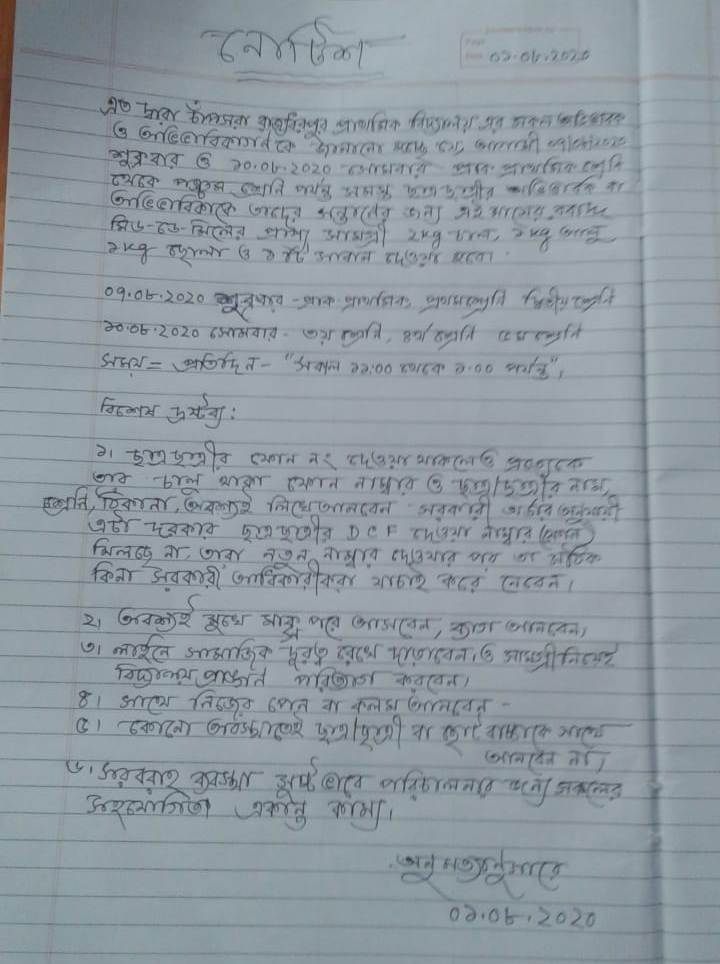 নোটিশ
০১.০৮.২০২০
এত দ্বারা প্রাথমিক বিদ্যালয় এর সকল অভিভাবক
ও অভিভাবিকাগনকে জানানো হচ্ছে যে আগামী
শুক্রবার ও ১০.০৮.২০২০ সোমবার প্রাক প্রাথমিক শ্রেনি
থেকে পঞ্চম শ্রেনি পর্যন্ত সমস্ত ছাত্রছাত্রীর অভিভাবক বা
অভিভাবিকাকে তাদের সন্তানের জন্য এই মাসের বরাদ্দ
মিড-ডে-মিলের খাদ্য সামগ্রী 2kg চাল, ২kg আলু
১kg ছোলা ও ১টি সাবান দেওয়া হবে।
০৭.০৮.২০২০ শুক্রবার - প্রাক প্রাথমিক, প্রথমশ্রেনি দ্বিতীয়শ্রেনি
১০.০৮.২০২০ সোমবার - ৩য় শ্রেনি, ৪র্থ শ্রেনি ৫ম শ্রেনি
সময় = প্রতিদিন - "সকাল ১১:০০ থেকে ১:০০ পর্যন্ত",
বিশেষ দ্রষ্টব্য:
১। ছাত্রছাত্রীর ফোন নং দেওয়া থাকলেও প্রত্যেকে
তার চালু থাকা ফোন নাম্বার ও ছাত্র/ছাত্রীর নাম,
শ্রেনি, ঠিকানা, অবশ্যই লিখে আনবেন সরকারী অনুযায়ী
এটা দরকার ছাত্রছাত্রীর DCF দেওয়া নাম্বার
মিলছে না, তারা নতুন নাম্বার দেওয়ার পর তা সঠিক
কিনা সরকারী আধিকারীকরা যাচাই করে নেবেন।
২, অবশ্যই মুখে মাস্ক পরে আসবেন, ছাতা আনবেন,
৩। লাইনে সামাজিক দুরত্ব রেখে দাড়াবেন, ও সামগ্রী নিয়েই
বিদ্যালয় প্রাঙ্গন পরিত্যাগ করবেন,
৪। সাথে নিজের পেন বা কলম আনবেন -
৫। কোনো অবস্থাতেই ছাত্র/ছাত্রী বা ছোট বাচ্চাকে সাথে
আনবেন না,
৬। সরবরাহ ব্যবস্থা সুষ্ঠ ভাবে পরিচালনার জন্য সকলের
সহযোগিতা একান্ত কাম্য।
অনুমত্যানুসারে
০১.০৮.২০২০